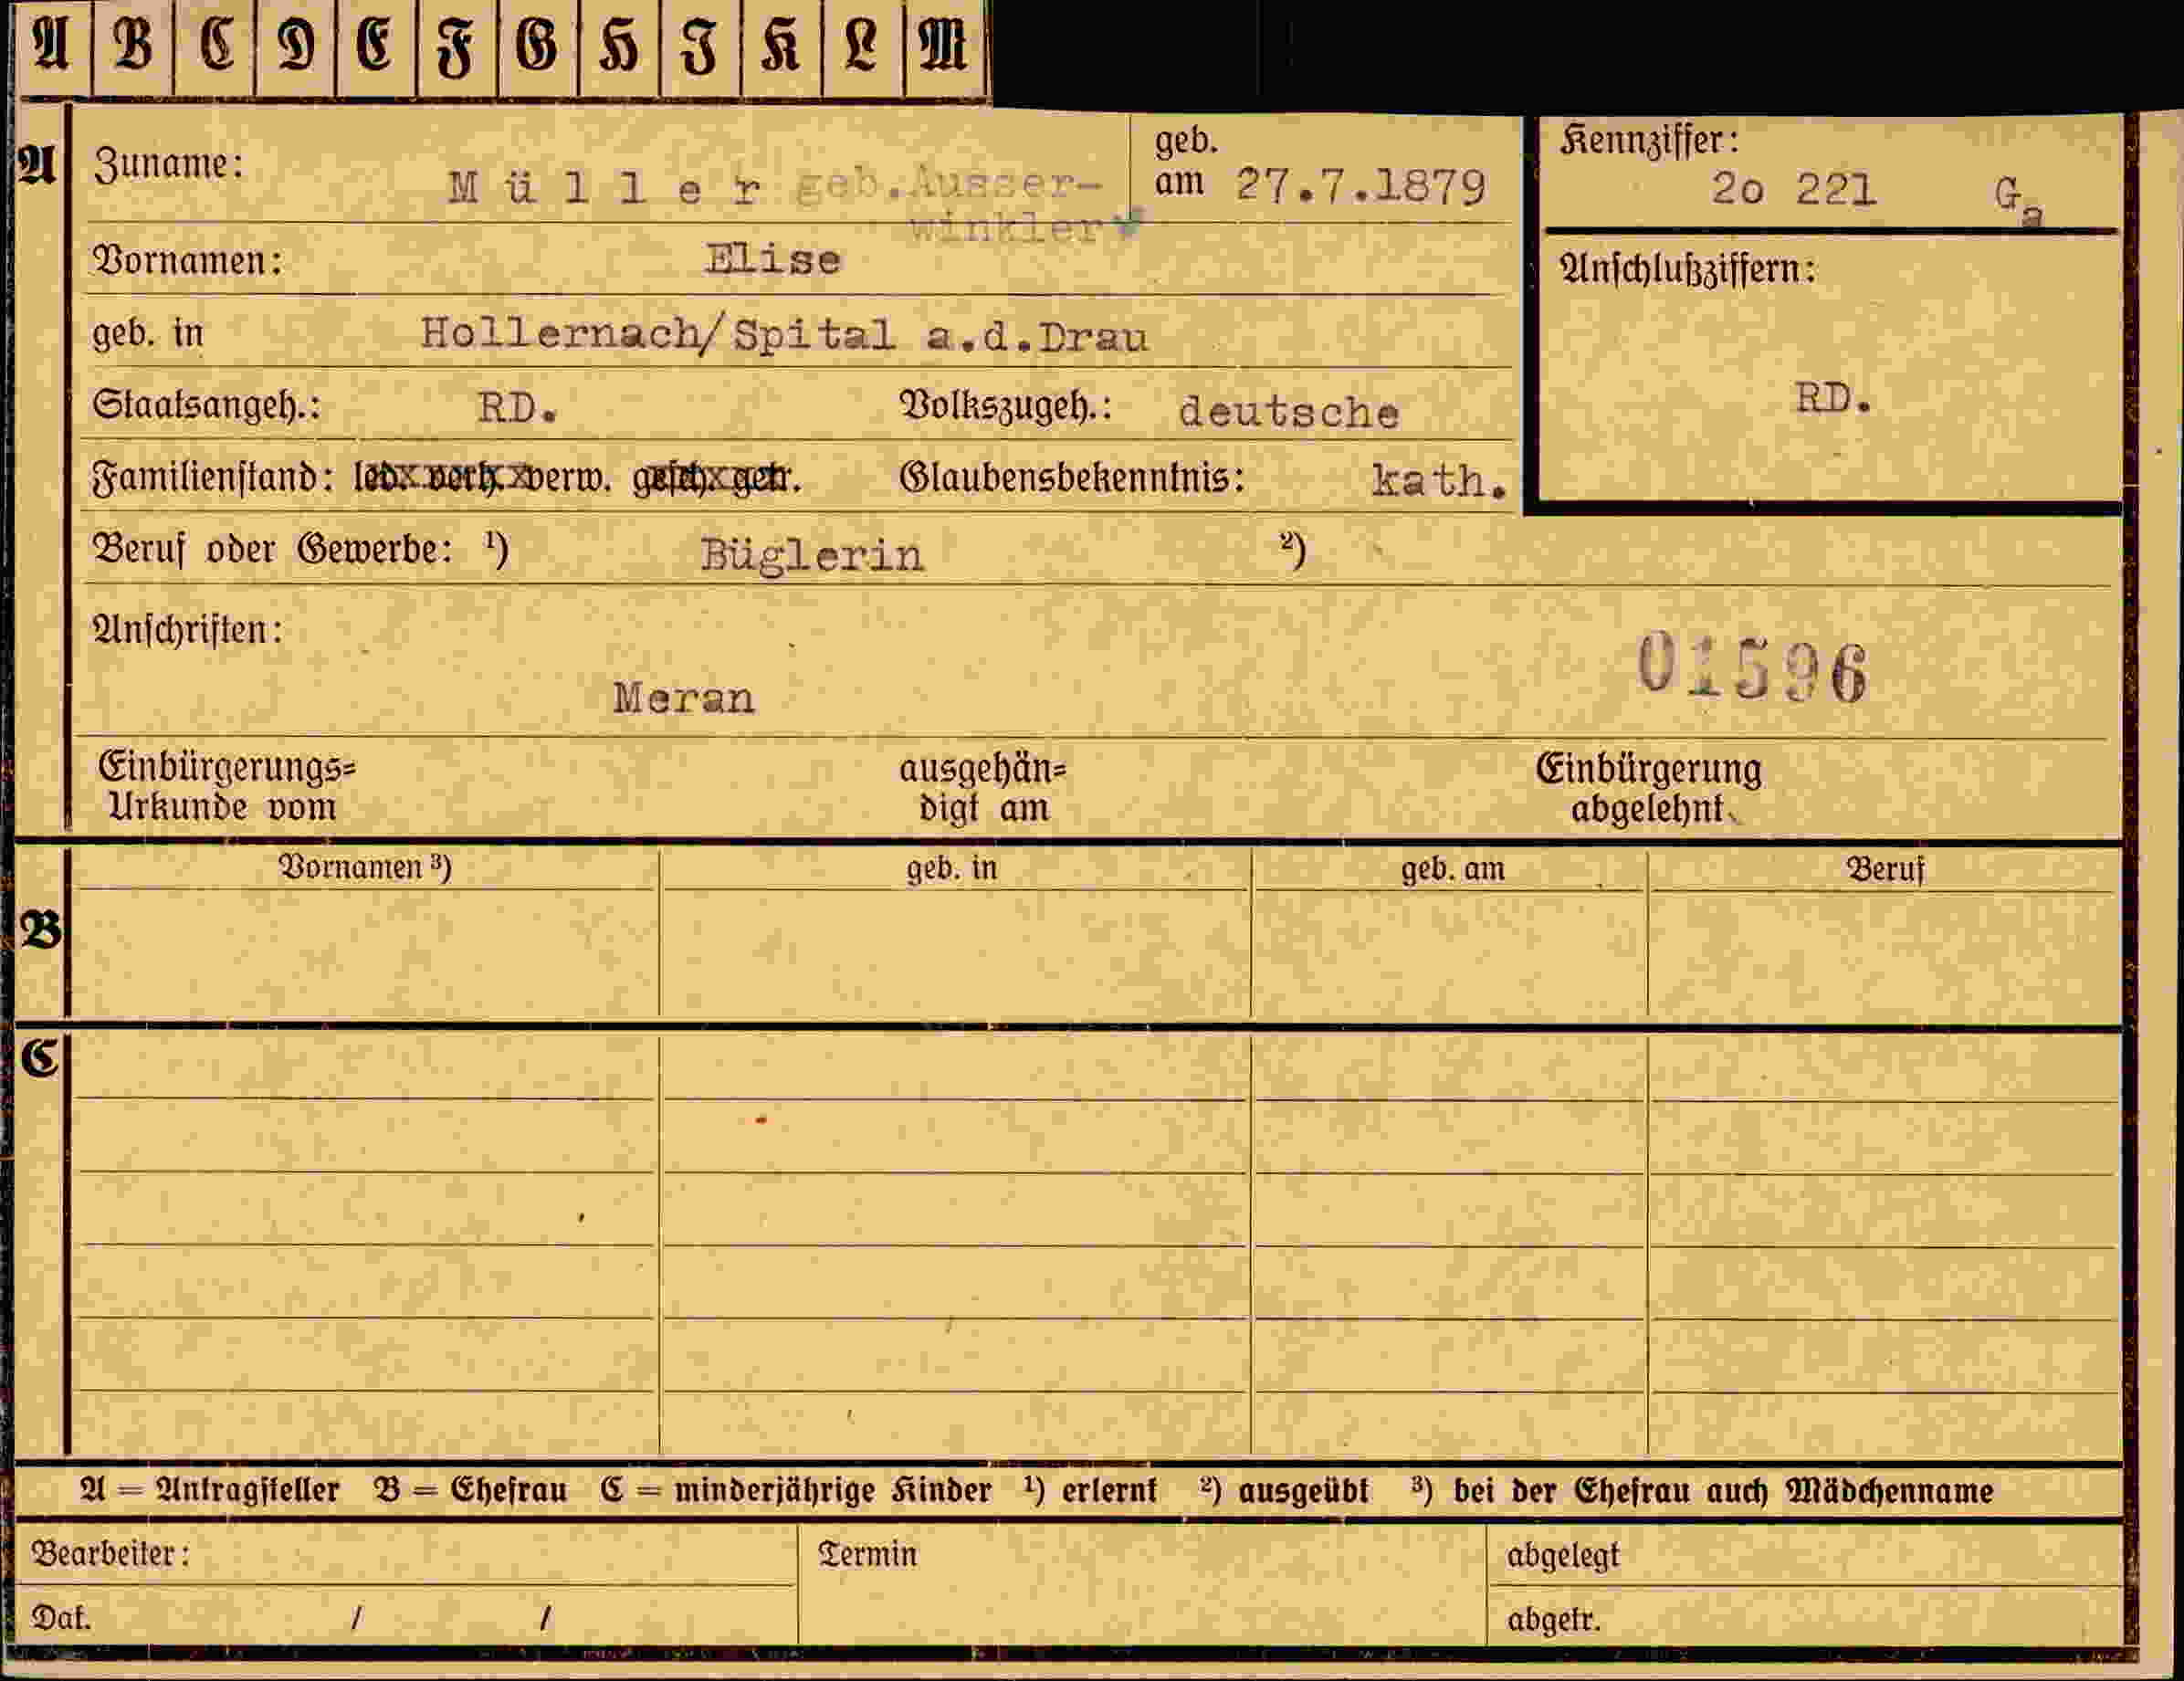 A B C D E F G H I K L M
A Zuname: Müller geb.Ausser- geb. am 27.7.1879 Kennziffer: 2o 221 Ga
winkler
Vornamen: Elise Anschlußziffern:
geb. in Hollernach/Spital a.d.Drau
Staatsangeh.: RD. Volkszugeh.: deutsche RD.
Familienstand: led. verh. verw. gesch. getr. Glaubensbekenntnis: kath.
Beruf oder Gewerbe: ¹) Büglerin ²)
Anschriften: 01596
Meran
Einbürgerungs= ausgehän= Einbürgerung
Urkunde vom digt am abgelehnt
Vornamen ³) geb. in geb. am Beruf
B
C
A = Antragsteller B = Ehefrau C = minderjährige Kinder ¹) erlernt ²) ausgeübt ³) bei der Ehefrau auch Mädchenname
Bearbeiter: Termin abgelegt
Dat. / / abgetr.